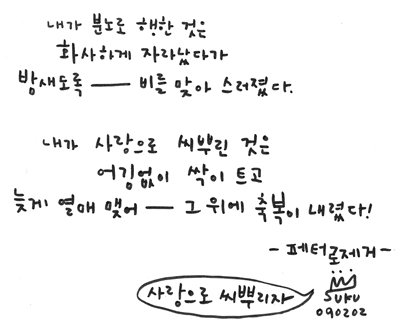 내가 분노로 행한 것은
화사하게 자라났다가
밤새도록 — 비를 맞아 스러졌다.
내가 사랑으로 씨뿌린 것은
어김없이 싹이 트고
늦게 열매 맺어 — 그 위에 축복이 내렸다!
- 페터로제거 -
사랑으로 씨뿌리자
SUKU
090202